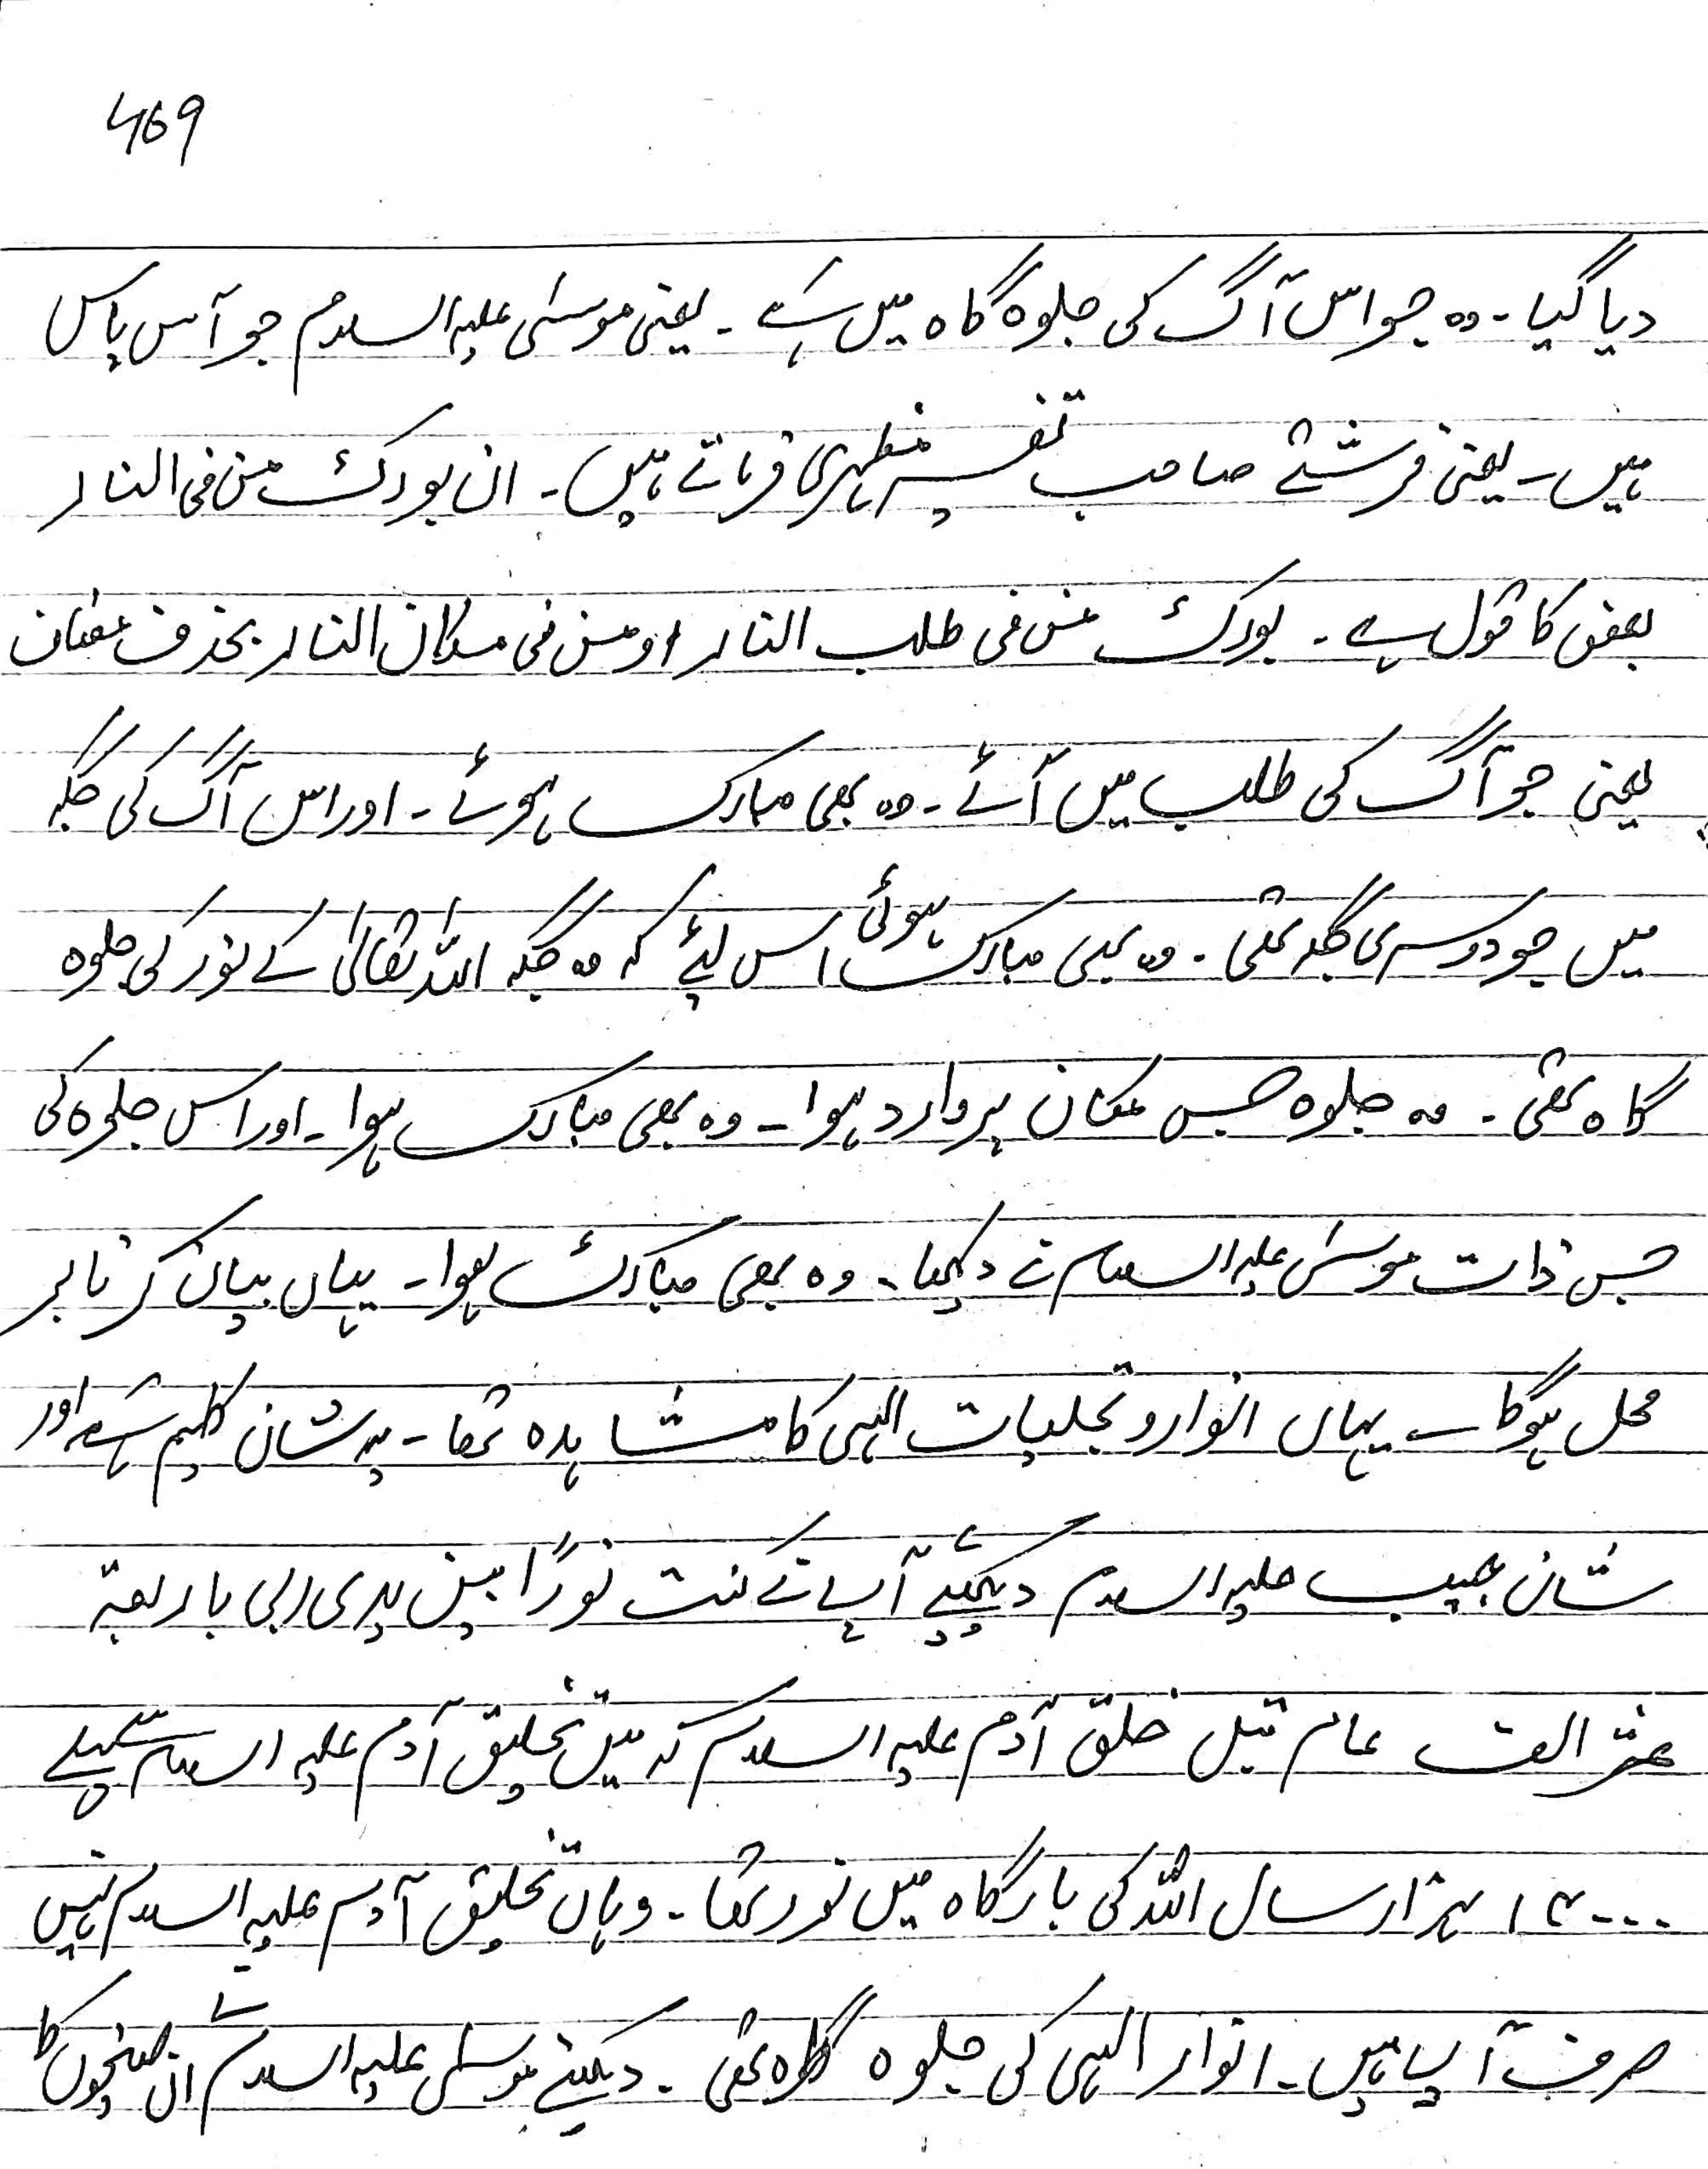 469
دیا گیا۔ وہ جو اس آگ کی جلوہ گاہ میں ہے۔ یعنی موسیٰ علیہ السلام جو آس پاس
ہیں۔ یعنی فرشتے صاحب تفسیر مظہری فرماتے ہیں۔ ان بورک من فی النار
بعض کا قول ہے۔ بورک من فی طلب النار او من فی مکان النار بحذف مضاف
یعنی جو آگ کی طلب میں آئے۔ وہ بھی مبارک ہوئے۔ اور اس آگ کی جگہ
میں جو دوسری جگہ تھی۔ وہ بھی مبارک ہوئی اس لئے کہ وہ جگہ اللہ تعالیٰ کے نور کی جلوہ
گاہ تھی۔ وہ جلوہ جس مکان پر وارد ہوا۔ وہ بھی مبارک ہوا۔ اور اس جلوہ کی
جس ذات موسیٰ علیہ السلام نے دیکھا۔ وہ بھی مبارک ہوا۔ یہاں بیان کرنا بر
محل ہوگا۔ یہاں انوار و تجلیات الہی کا مشاہدہ تھا۔ یہ شان کلیم ہے اور
شان حبیب علیہ السلام دیکھیے آپ نے کنت نورًا بین یدی ربی باربعۃ
عشر الف عام قبل خلق آدم علیہ السلام کہ میں تخلیق آدم علیہ السلام سے پہلے
۱۴۰۰۰ ہزار سال اللہ کی بارگاہ میں نور تھا۔ وہاں تخلیق آدم علیہ السلام نہیں
صرف آپ ہیں۔ انوار الہی کی جلوہ گاہ تھی۔ دیکھئے موسیٰ علیہ السلام نے ان کا